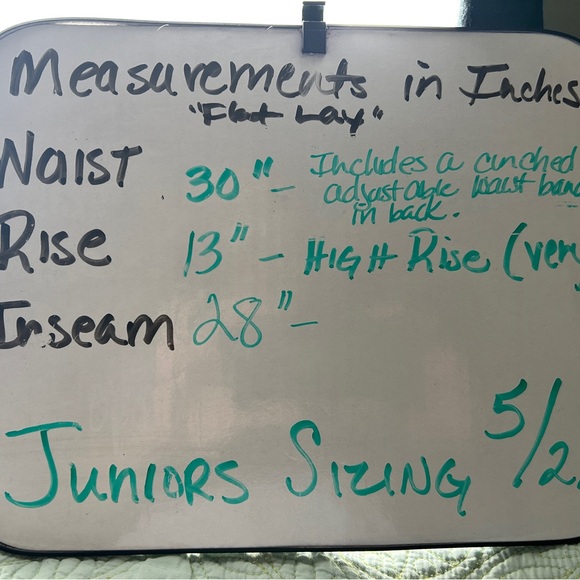 Measurements in Inches
"Flat Lay"
Waist 30" - Includes a cinched
adjustable waist band
in back.
Rise 13" - HIGH Rise (very
Inseam 28" -
JUNIORS SIZING 5/2